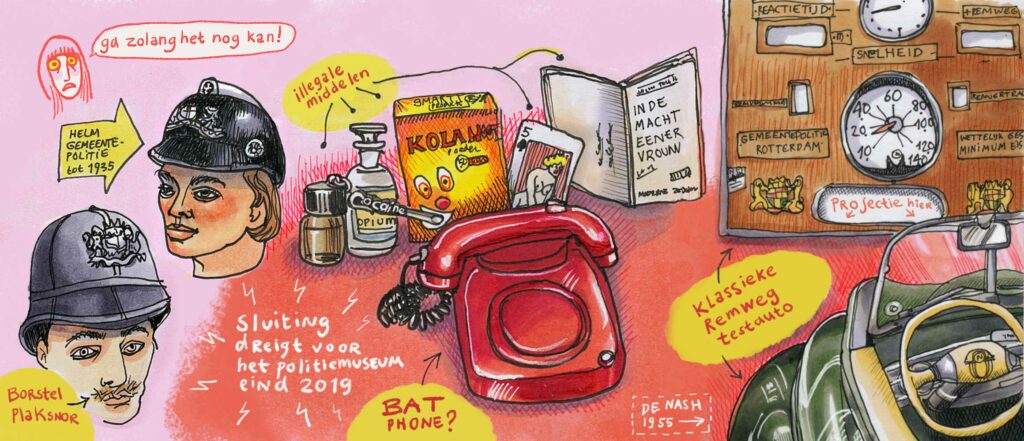 ga zolang het nog kan!
HELM
GEMEENTE-
POLITIE
tot 1935
Borstel
Plaksnor
illegale
middelen
Cocaïne
OPIUM
KOLA
poeder
5
IN DE
MACHT
EENER
VROUW
Sluiting
dreigt voor
het politiemuseum
eind 2019
BAT
PHONE?
DE NASH
1955
Klassieke
Remweg
testauto
REACTIETIJD
REMWEG
SNELHEID
20
40
60
80
100
120
140
GEMEENTEPOLITIE
ROTTERDAM
WETTELIJK
MINIMUM
PROJECTIE hier